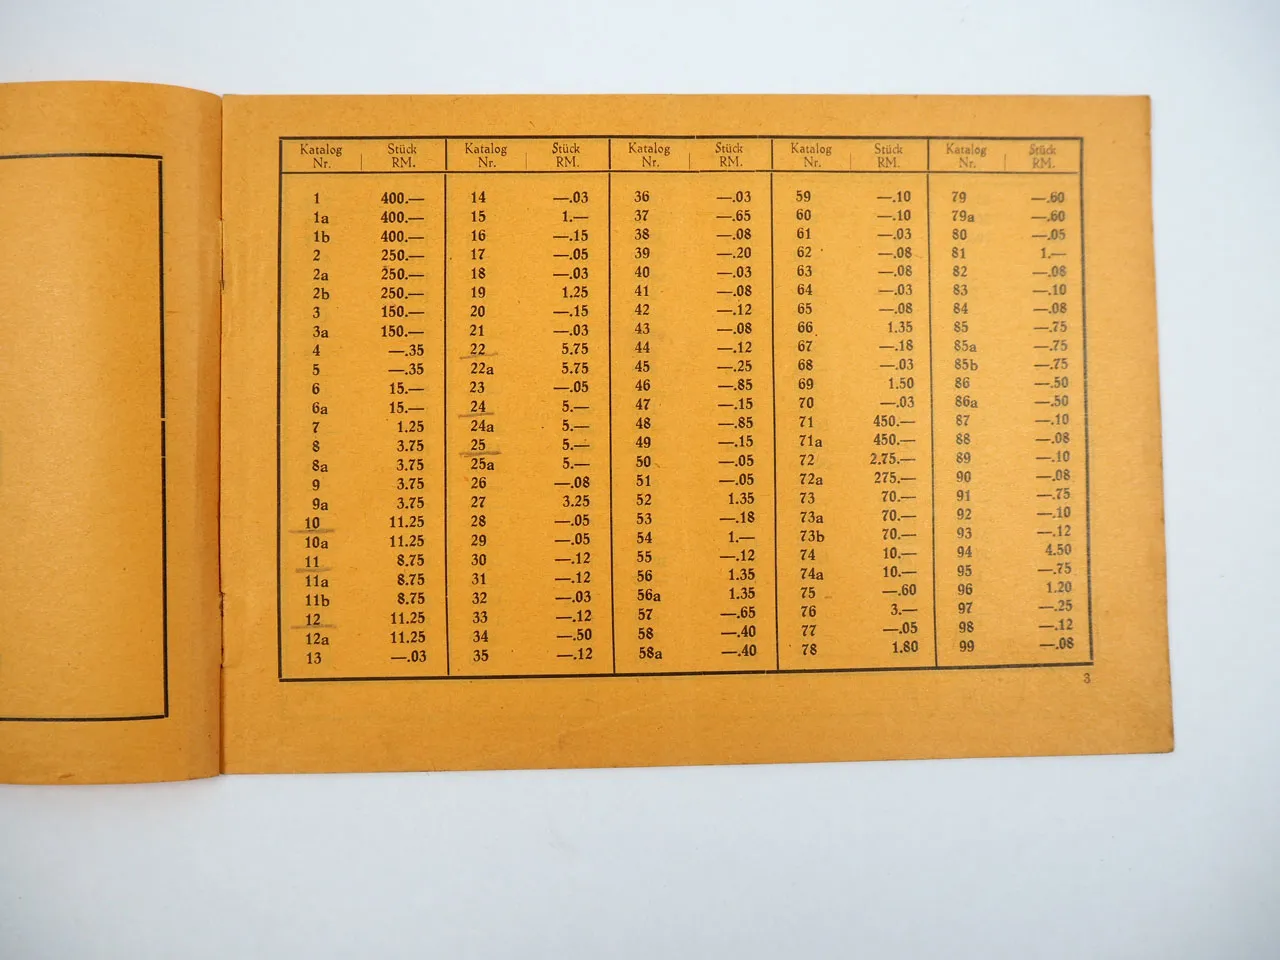 Katalog Nr. Stück RM.
1 400.—
1a 400.—
1b 400.—
2 250.—
2a 250.—
2b 250.—
3 150.—
3a 150.—
4 —.35
5 —.35
6 15.—
6a 15.—
7 1.25
8 3.75
8a 3.75
9 3.75
9a 3.75
10 11.25
10a 11.25
11 8.75
11a 8.75
11b 8.75
12 11.25
12a 11.25
13 —.03
Katalog Nr. Stück RM.
14 —.03
15 1.—
16 —.15
17 —.05
18 —.03
19 1.25
20 —.15
21 —.03
22 5.75
22a 5.75
23 —.05
24 5.—
24a 5.—
25 5.—
25a 5.—
26 —.08
27 3.25
28 —.05
29 —.05
30 —.12
31 —.12
32 —.03
33 —.12
34 —.50
35 —.12
Katalog Nr. Stück RM.
36 —.03
37 —.65
38 —.08
39 —.20
40 —.03
41 —.08
42 —.12
43 —.08
44 —.12
45 —.25
46 —.85
47 —.15
48 —.85
49 —.15
50 —.05
51 —.05
52 1.35
53 —.18
54 1.—
55 —.12
56 1.35
56a 1.35
57 —.65
58 —.40
58a —.40
Katalog Nr. Stück RM.
59 —.10
60 —.10
61 —.03
62 —.08
63 —.08
64 —.03
65 —.08
66 1.35
67 —.18
68 —.03
69 1.50
70 —.03
71 450.—
71a 450.—
72 2.75.—
72a 275.—
73 70.—
73a 70.—
73b 70.—
74 10.—
74a 10.—
75 —.60
76 3.—
77 —.05
78 1.80
Katalog Nr. Stück RM.
79 —.60
79a —.60
80 —.05
81 1.—
82 —.08
83 —.10
84 —.08
85 —.75
85a —.75
85b —.75
86 —.50
86a —.50
87 —.10
88 —.08
89 —.10
90 —.08
91 —.75
92 —.10
93 —.12
94 4.50
95 —.75
96 1.20
97 —.25
98 —.12
99 —.08
3